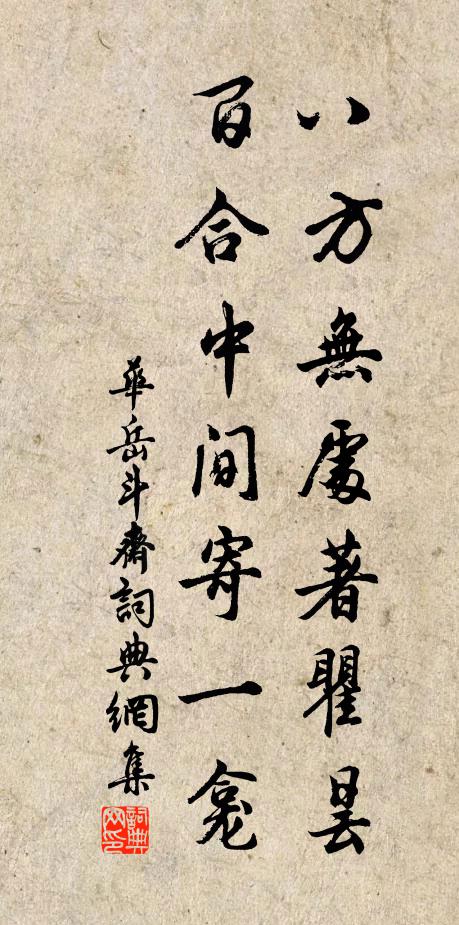 八方無處著瞿曇
百合中間寄一龕
華岳斗齋詞典網集
詞典網印